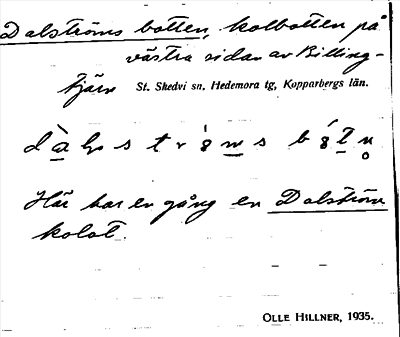 Dalströms botten, kolbotten på
västra sidan av Billing-
tjärn St. Skedvi sn. Hedemora tg, Kopparbergs län.
Här har en gång en Dalström
kolat.
OLLE HILLNER, 1935.